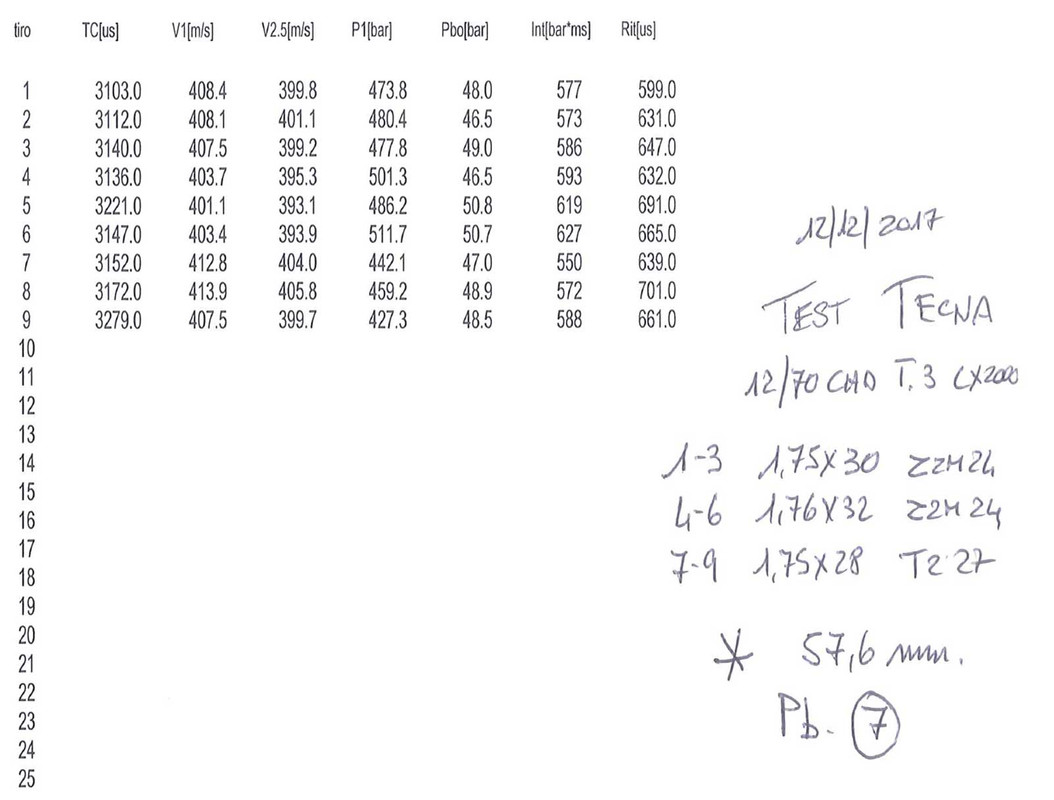 tiro TC[us] V1[m/s] V2.5[m/s] P1[bar] Pbo[bar] Int[bar*ms] Rit[us]
1 3103.0 408.4 399.8 473.8 48.0 577 599.0
2 3112.0 408.1 401.1 480.4 46.5 573 631.0
3 3140.0 407.5 399.2 477.8 49.0 586 647.0
4 3136.0 403.7 395.3 501.3 46.5 593 632.0
5 3221.0 401.1 393.1 486.2 50.8 619 691.0
6 3147.0 403.4 393.9 511.7 50.7 627 665.0
7 3152.0 412.8 404.0 442.1 47.0 550 639.0
8 3172.0 413.9 405.8 459.2 48.9 572 701.0
9 3279.0 407.5 399.7 427.3 48.5 588 661.0
10
11
12
13
14
15
16
17
18
19
20
21
22
23
24
25
12/12/2017
TEST TECNA
12/70 T.3 CX2000
1-3 1,75X30 Z2M24
4-6 1,76X32 Z2M24
7-9 1,75X28 T2 27
* 57,6 mm.
Pb. 7